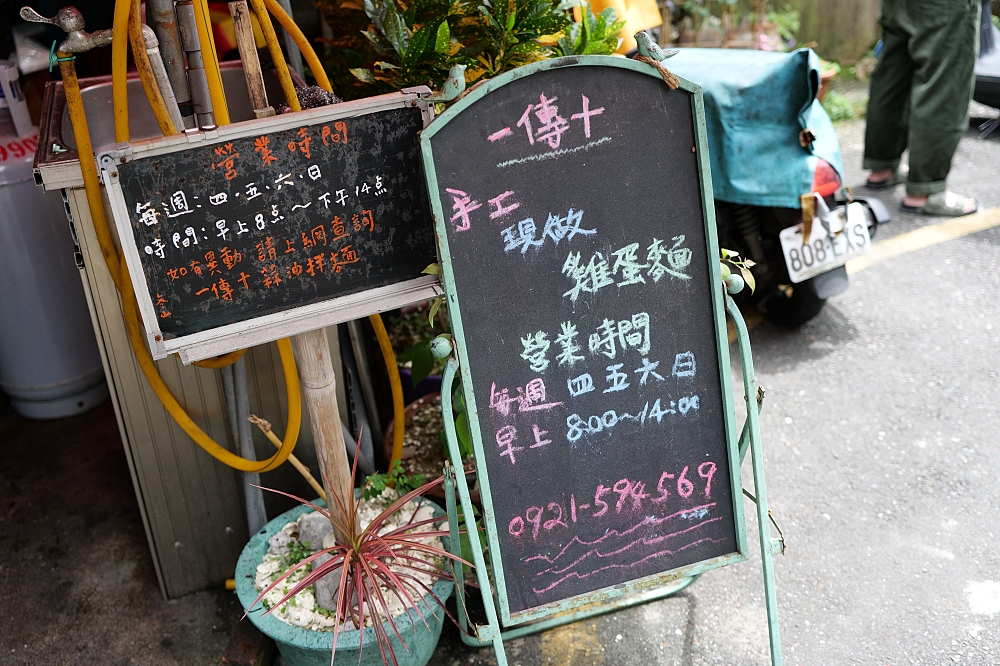 營業時間
每週:四.五.六.日
時間:早上8點~下午14點
如有異動 請上網查詢
一傳十 蒜油拌麵
一傳十
手工
現做
雞蛋麵
營業時間
每週 四五六日
早上 8:00~14:00
0921-594-569
808-EXS